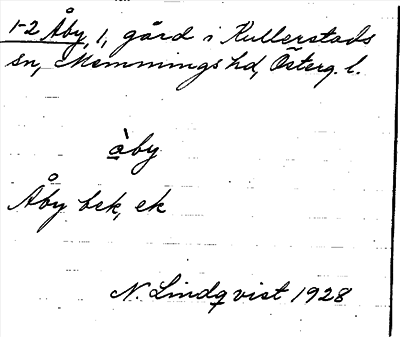 1-2 Åby, 1, gård i Kullerstads
sn, Memmings hd, Österg. l.
à̲by
Åby bek, ek
N. Lindqvist 1928